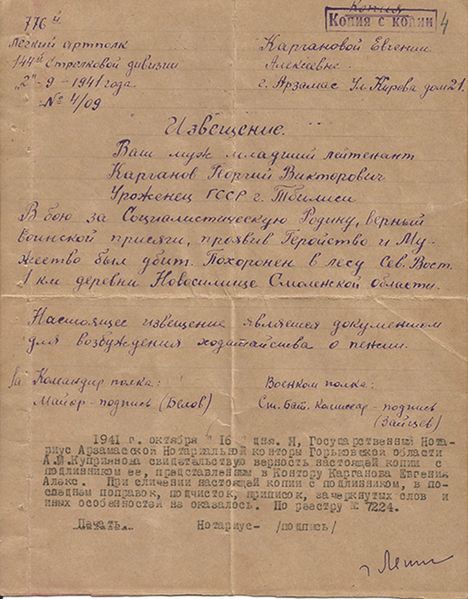 Копия
Копия с копии
4
776й
Легкий артполк
144й Стрелковой дивизии
"2"-9-1941 года.
№ 4/09
Каргановой Евгении
Алексеевне.
г. Арзамас Ул. Кирова дом 21.
Извещение.
Ваш муж младший лейтенант
Карганов Георгий Викторович
Уроженец ГССР г. Тбилиси
В бою за Социалистическую Родину, верный
воинской присяги, проявив Геройство и Му-
жество был убит. Похоронен в лесу Сев. Вост.
1 км деревни Новосилище Смоленской области.
Настоящее извещение является документом
для возбуждения ходатайства о пенсии.
За Командир полка:
Майор-подпись (Белов)
Военком полка:
Ст. бат. комиссар-подпись
(Зайцев)
1941 г. октября "16" дня. Я, Государственный Нота-
риус Арзамасской Нотариальной конторы Горьковской области
А. Куприянова свидетельствую верность настоящей копии с
подлинником ее, представленным в Контору Карганова Евгения
Алекс. При сличении настоящей копии с подлинником, в по-
следнем поправок, подчисток, приписок, зачеркнутых слов и
иных особенностей не оказалось. По реестру № 7224.
Печать. Нотариус- /подпись/